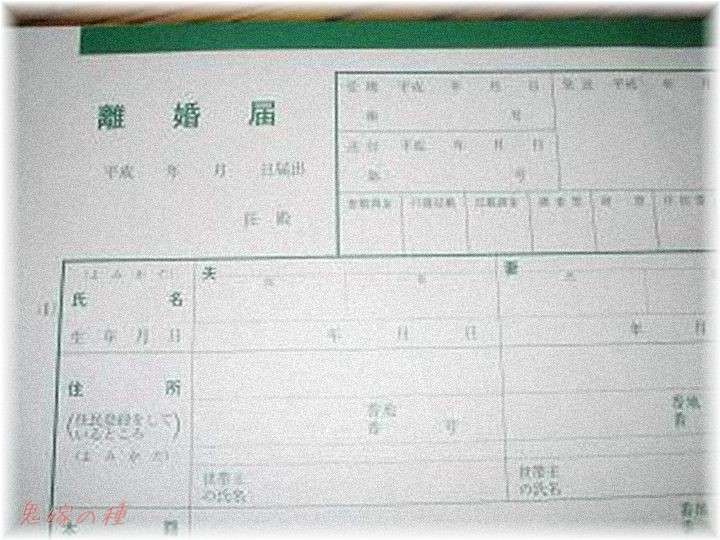 離婚届
平成 年 月 日届出
長 殿
受理 平成 年 月 日
発送 平成
第 号
送付 平成 年 月 日
第 号
書類調査
戸籍記載
記載調査
調査票
附票
住民票
(よみかた)
夫
妻
(1)
氏名
氏 名
氏
生年月日
年 月 日
年 月
住所
(住民登録をして
いるところ)
(よみかた)
番地
番 号
番地
番
世帯主
の氏名
世帯主
の氏名
本籍
番地
鬼嫁の種